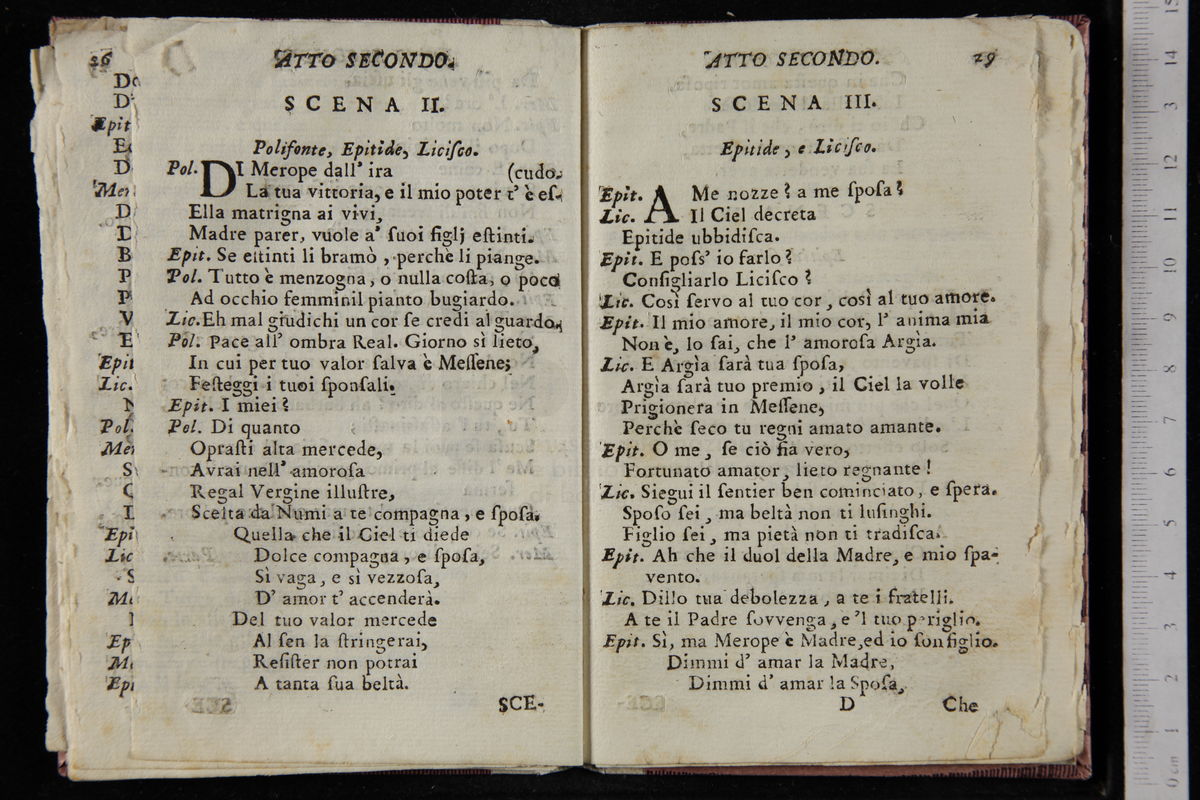 26
ATTO SECONDO.
SCENA II.
Polifonte, Epitide, Liciſco.
Pol. DI Merope dall' ira (cudo.
La tua vittoria, e il mio poter t' è eſ-
Ella matrigna ai vivi,
Madre parer, vuole a' ſuoi figlj eſtinti.
Epit. Se eſtinti li bramò, perchè li piange.
Pol. Tutto è menzogna, o nulla coſta, o poco
Ad occhio femminil pianto bugiardo.
Lic. Eh mal giudichi un cor ſe credi al guardo.
Pol. Pace all' ombra Real. Giorno sì lieto,
In cui per tuo valor ſalva è Meſſene;
Feſteggi i tuoi ſponſali.
Epit. I miei?
Pol. Di quanto
Opraſti alta mercede,
Avrai nell' amoroſa
Regal Vergine illuſtre,
Scelta da Numi a te compagna, e ſpoſa.
Quella che il Ciel ti diede
Dolce compagna, e ſpoſa,
Sì vaga, e sì vezzoſa,
D' amor t' accenderà.
Del tuo valor mercede
Al ſen la ſtringerai,
Reſiſter non potrai
A tanta ſua beltà.
SCE-
ATTO SECONDO. 29
SCENA III.
Epitide, e Liciſco.
Epit. A Me nozze? a me ſpoſa?
Lic. Il Ciel decreta
Epitide ubbidiſca.
Epit. E poſs' io farlo?
Conſigliarlo Liciſco?
Lic. Così ſervo al tuo cor, così al tuo amore.
Epit. Il mio amore, il mio cor, l' anima mia
Non è, lo ſai, che l' amoroſa Argìa.
Lic. E Argìa ſarà tua ſpoſa,
Argìa ſarà tuo premio, il Ciel la volle
Prigionera in Meſſene,
Perchè ſeco tu regni amato amante.
Epit. O me, ſe ciò fia vero,
Fortunato amator, lieto regnante!
Lic. Siegui il ſentier ben cominciato, e ſpera.
Spoſo ſei, ma beltà non ti luſinghi.
Figlio ſei, ma pietà non ti tradiſca.
Epit. Ah che il duol della Madre, e mio ſpa-
vento.
Lic. Dillo tua debolezza, a te i fratelli.
A te il Padre ſovvenga, e 'l tuo periglio.
Epit. Sì, ma Merope è Madre, ed io ſon figlio.
Dimmi d' amar la Madre,
Dimmi d' amar la Spoſa,
D Che